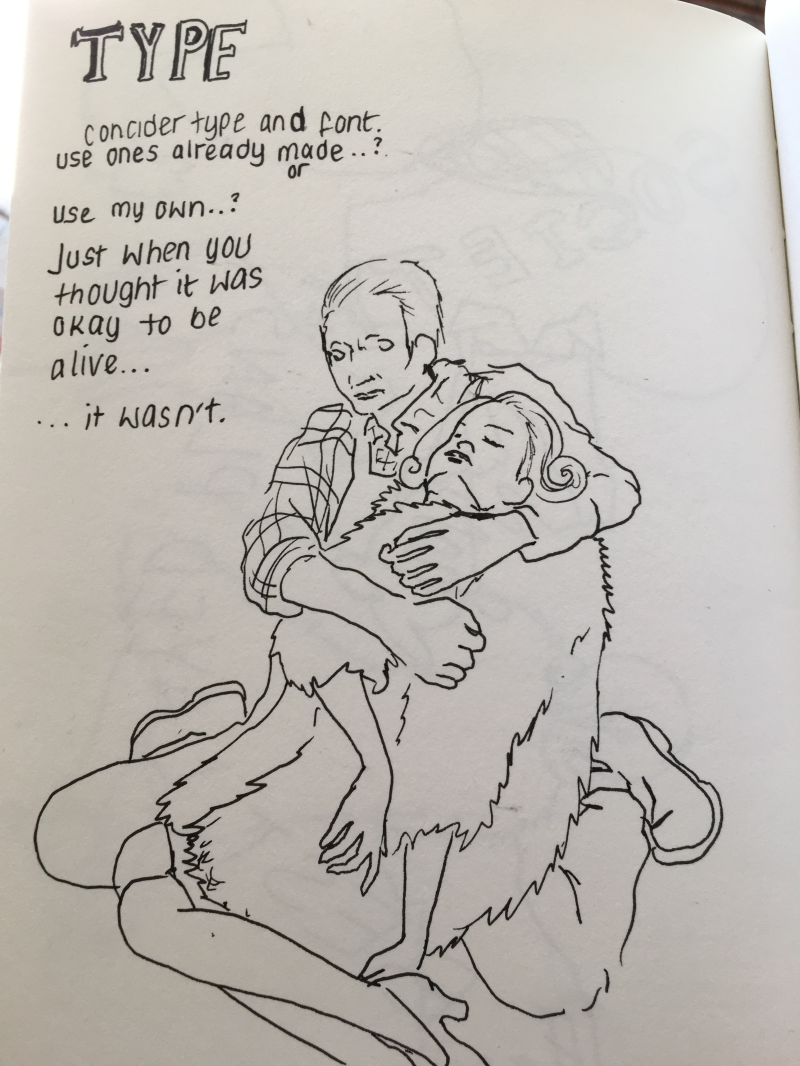 TYPE
concider type and font.
use ones already made..?
or
use my own..?
Just when you
thought it was
okay to be
alive...
... it wasn't.